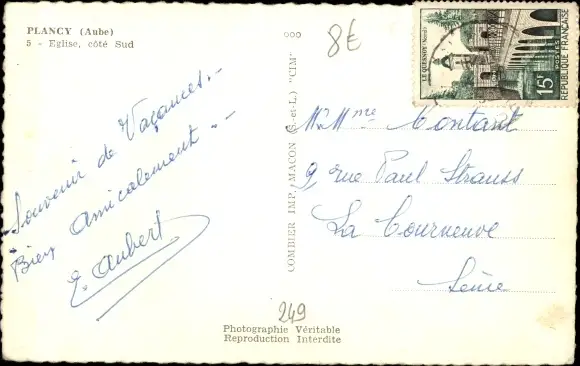 PLANCY (Aube)
5 - Eglise, côté Sud
8€
LE QUESNOY (Nord)
15F
POSTES
RÉPUBLIQUE FRANÇAISE
Souvenir de Vacances.-
Bien Amicalement.-
E. Aubert
COMBIER IMP. MACON (S.-et-L.) "CIM"
M. Mme Contant
9, rue Paul Strauss
La Courneuve
Seine
249
Photographie Véritable
Reproduction Interdite